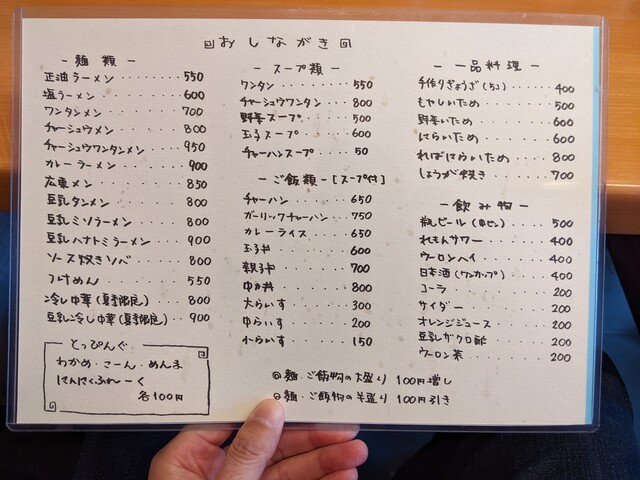 おしながき
- 麺類 -
正油ラーメン ‥‥‥ 550
塩ラーメン ‥‥‥ 600
ワンタンメン ‥‥‥ 700
チャーシュウメン ‥‥‥ 800
チャーシュウワンタンメン ‥‥ 950
カレーラーメン ‥‥‥ 900
広東メン ‥‥‥ 850
豆乳タンメン ‥‥‥ 800
豆乳ミソラーメン ‥‥‥ 800
豆乳ハナトミラーメン ‥‥ 900
ソース焼きソバ ‥‥‥ 800
つけめん ‥‥‥ 550
冷し中華(夏季限定) ‥‥ 800
豆乳冷し中華(夏季限定) ‥‥ 900
とっぴんぐ
わかめ・こーん・めんま
にんにくふれーく
各100円
- スープ類 -
ワンタン ‥‥‥ 550
チャーシュウワンタン ‥‥ 800
野菜スープ ‥‥‥ 500
玉子スープ ‥‥‥ 600
チャーハンスープ ‥‥‥ 50
- ご飯類 -[スープ付]
チャーハン ‥‥‥ 650
ガーリックチャーハン ‥‥ 750
カレーライス ‥‥‥ 650
玉子丼 ‥‥‥ 600
親子丼 ‥‥‥ 700
中カ丼 ‥‥‥ 800
大らいす ‥‥‥ 300
中らいす ‥‥‥ 200
小らいす ‥‥‥ 150
- 一品料理 -
手作りぎょうざ(5コ) ‥‥ 400
もやしいため ‥‥‥ 500
野菜いため ‥‥‥ 600
にらいため ‥‥‥ 600
ればにらいため ‥‥‥ 800
しょうが焼き ‥‥‥ 700
- 飲み物 -
瓶ビール(中ビン) ‥‥ 500
れもんサワー ‥‥‥ 400
ウーロンハイ ‥‥‥ 400
日本酒(ワンカップ) ‥‥ 400
コーラ ‥‥‥ 200
サイダー ‥‥‥ 200
オレンジジュース ‥‥‥ 200
豆乳ザクロ酢 ‥‥‥ 200
ウーロン茶 ‥‥‥ 200
◎麺・ご飯物の大盛り 100円増し
◎麺・ご飯物の半盛り 100円引き